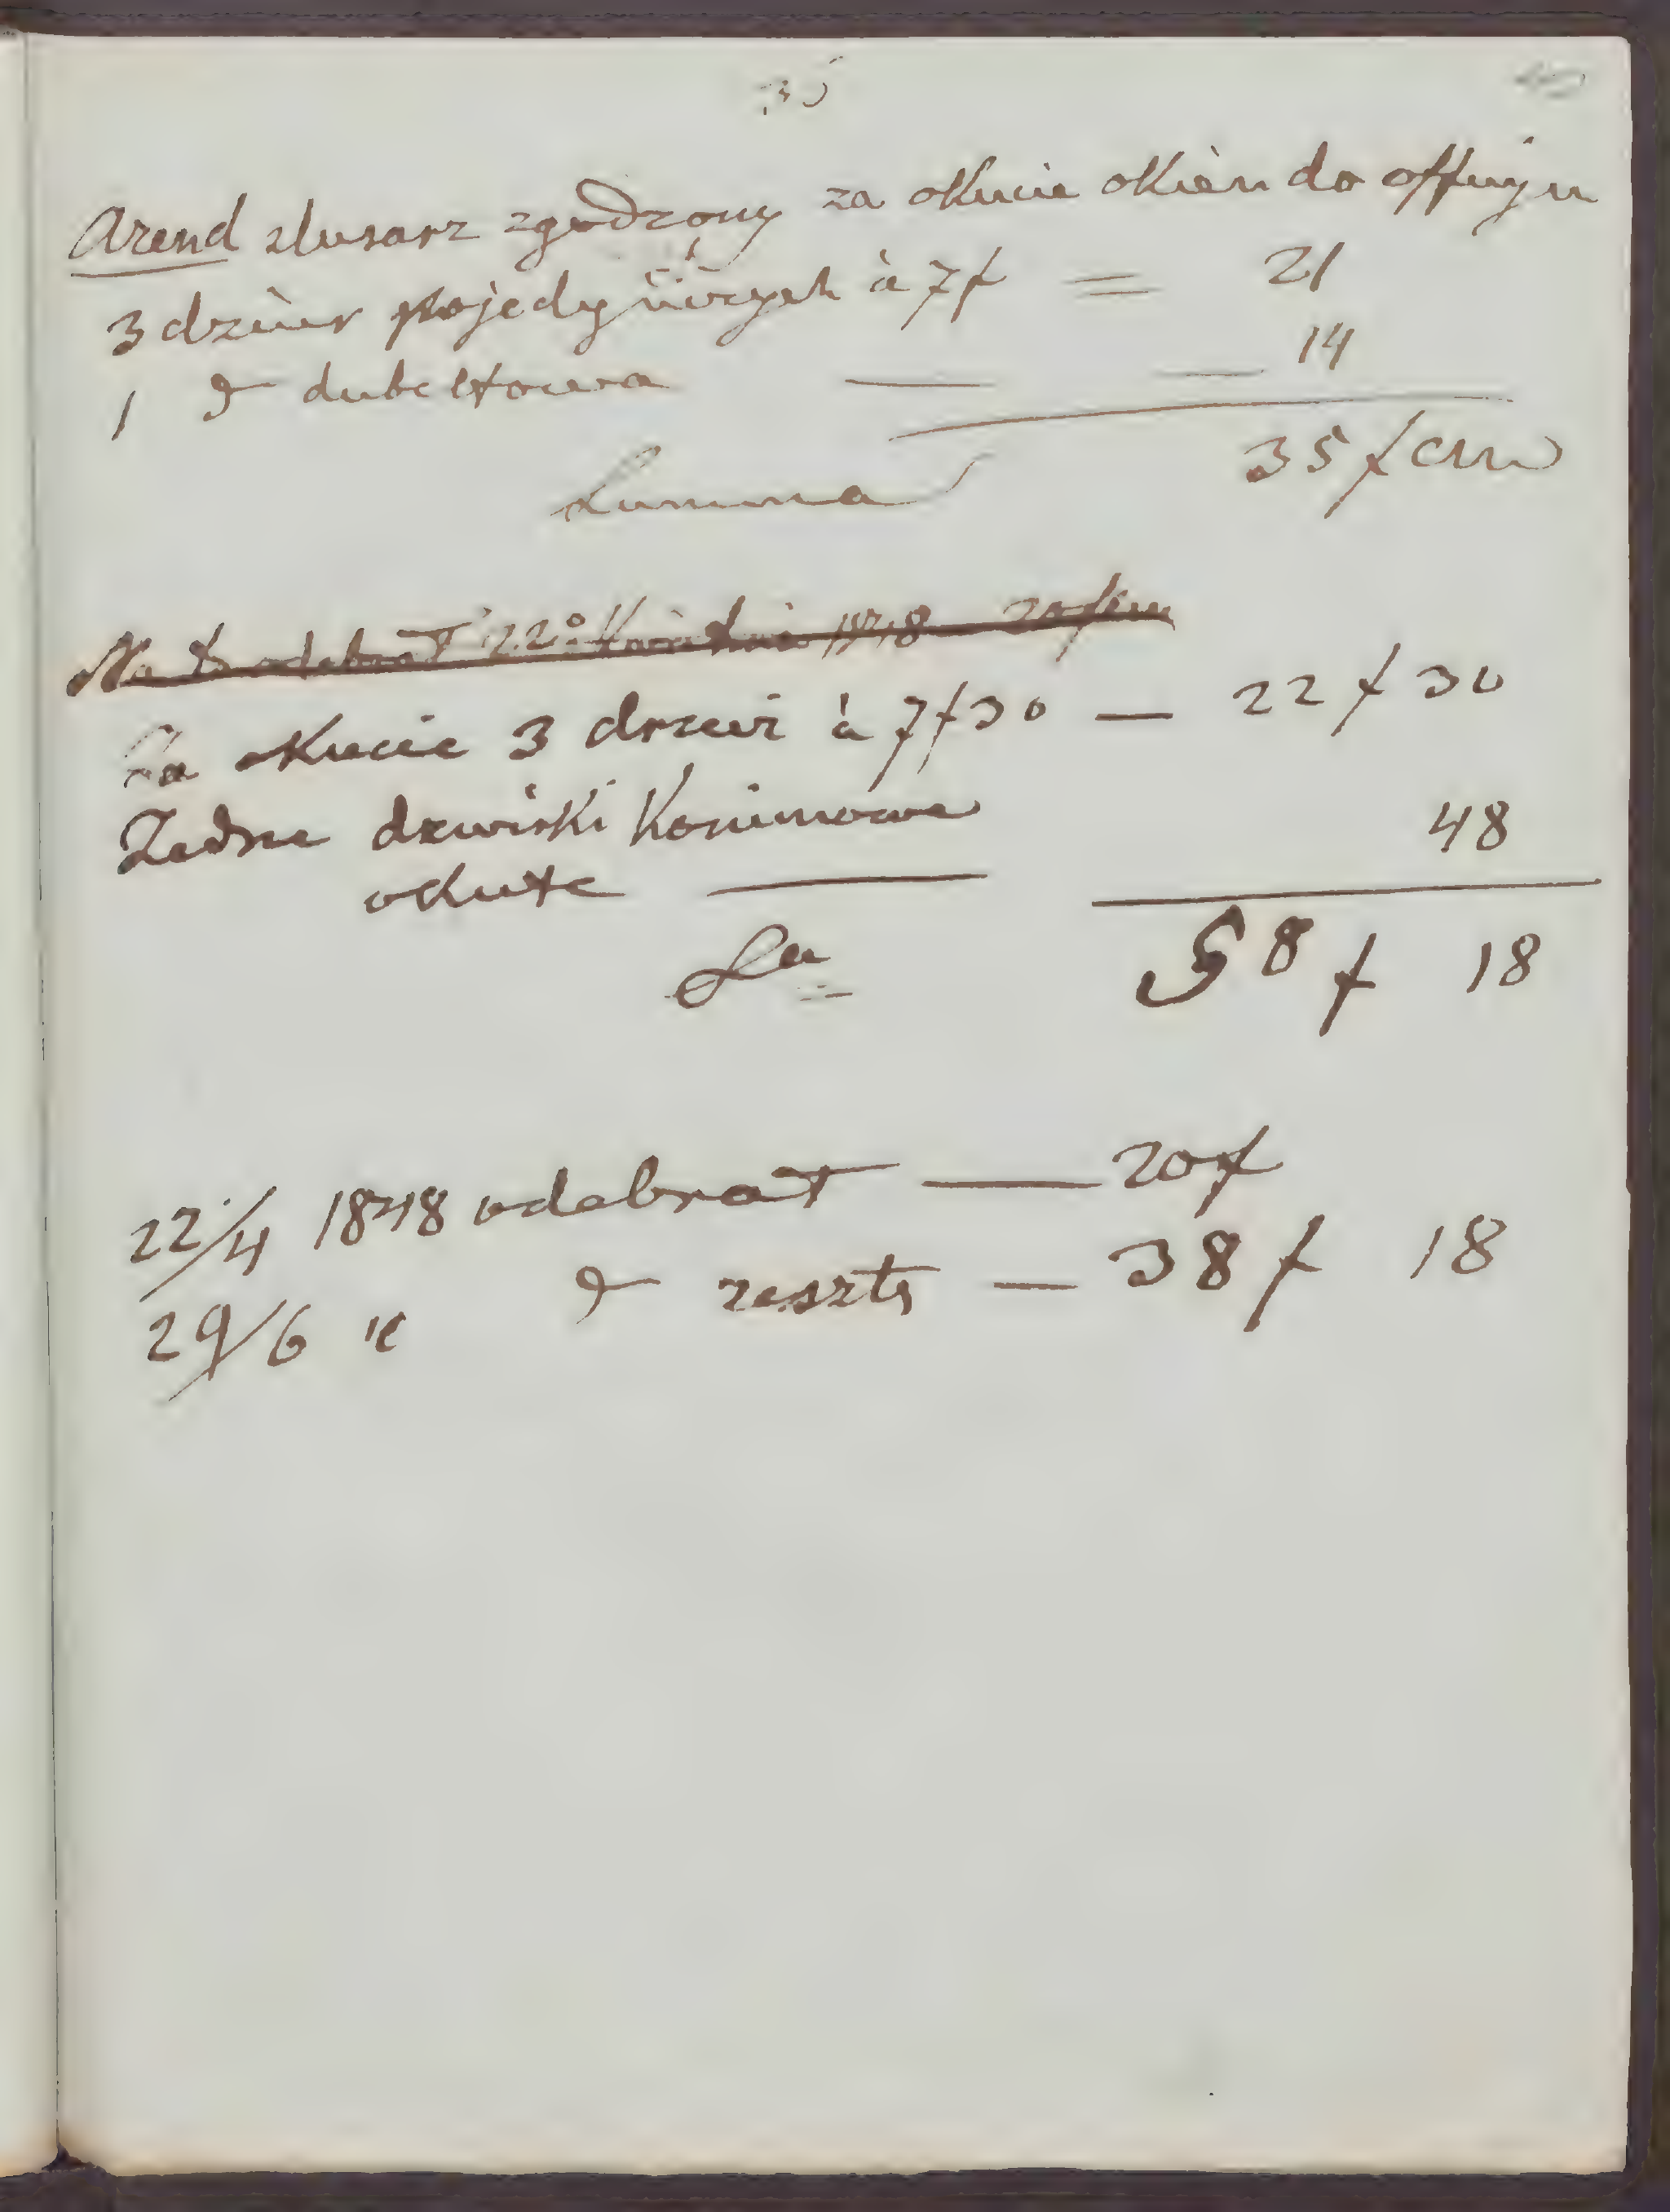 35
40
Arend slusarz zgodzony za okucie okien do offinyn
3 dzwir pojedyńczych à 7f = 21
1 d dubeltowa — — 14
Summa 35 f CM
Na to odebrał 22º Kwietnia 1848 20 f cm
Za okucie 3 drzwi à 7f30 — 22 f 30
Żadne dzwirki kominowe 48
okute —
Sa 58 f 18
22/4 1848 odebrał — 20f
29/6 " d resztę — 38 f 18